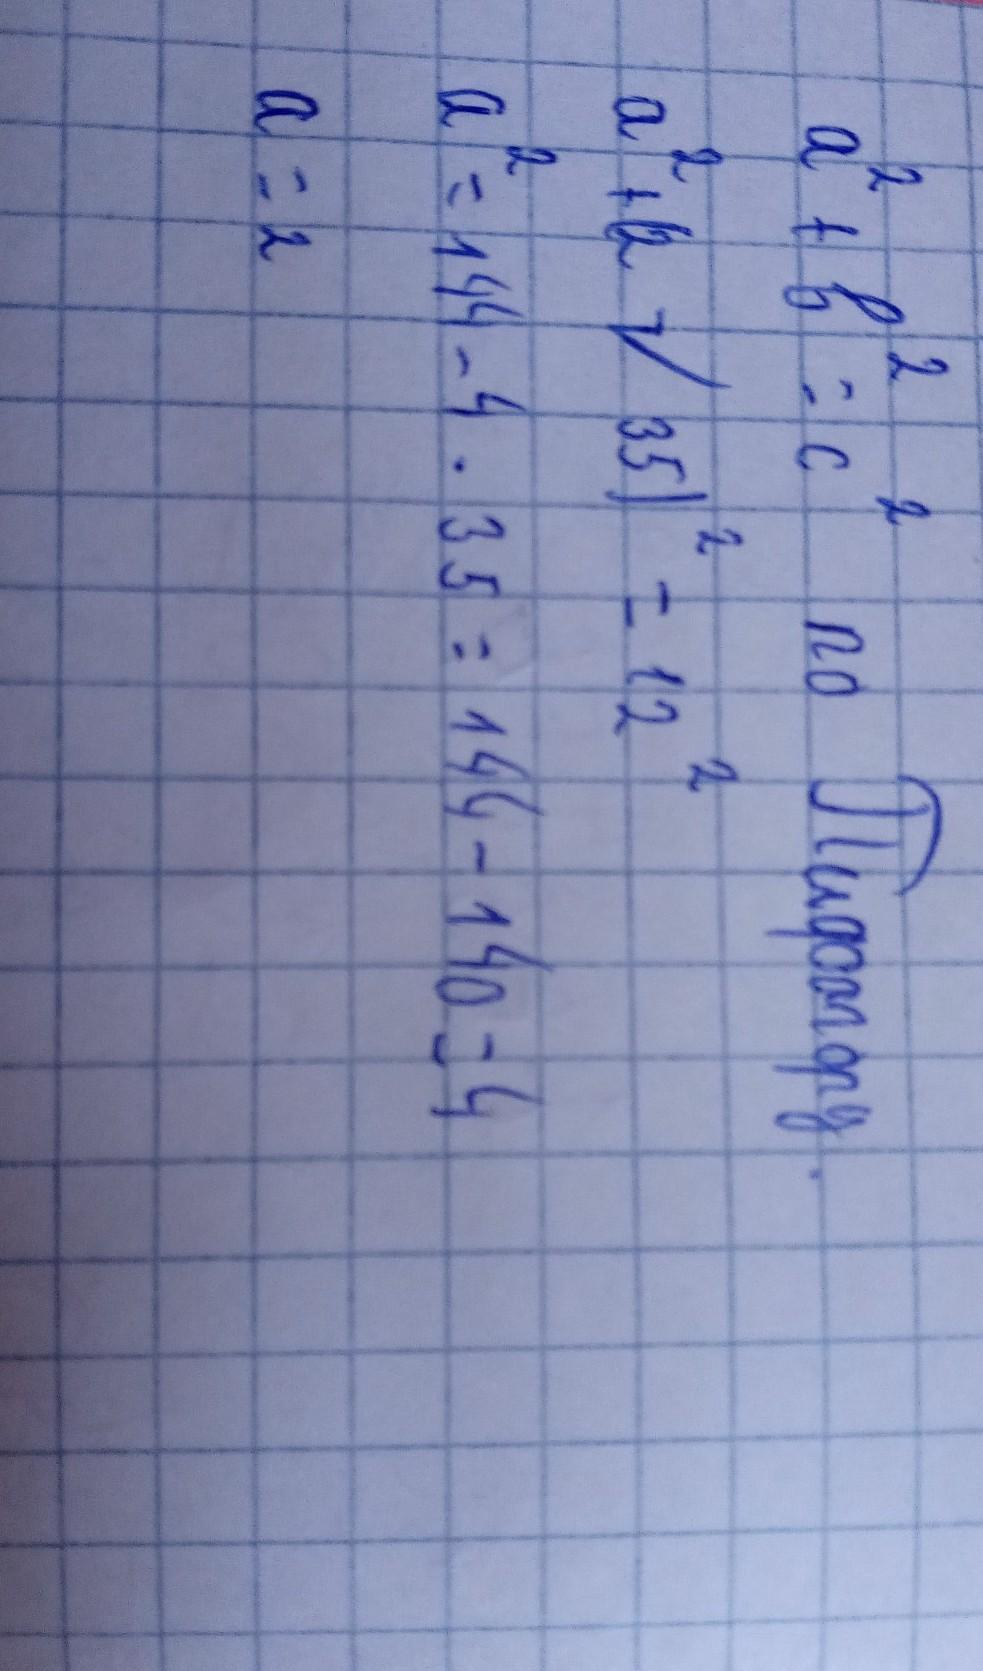 a² + b² = c² по Пифагору.
a² + (2√35)² = 12²
a² = 144 - 4 · 35 = 144 - 140 = 4
a = 2